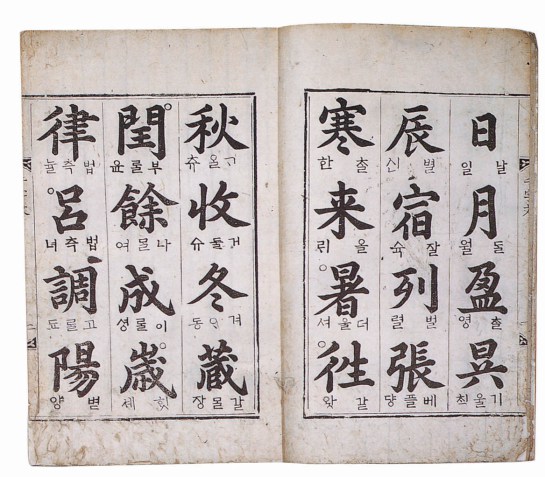 日 날 일 月 ᄃᆞᆯ 월 盈 ᄎᆞᆯ 영 昃 기울 칙
辰 별 신 宿 잘 슉 列 벌 렬 張 베플 댱
寒 ᄎᆞᆯ 한 来 올 ᄅᆡ 暑 더울 셔 徃 갈 왕
秋 츄 收 거둘 슈 冬 동 蔵 갈ᄆᆞᆯ 장
閏 부룰 윤 餘 나ᄆᆞᆯ 여 成 이룰 셩 歳 셰
律 법측 呂 법측 녀 調 고룰 됴 陽 볃 양